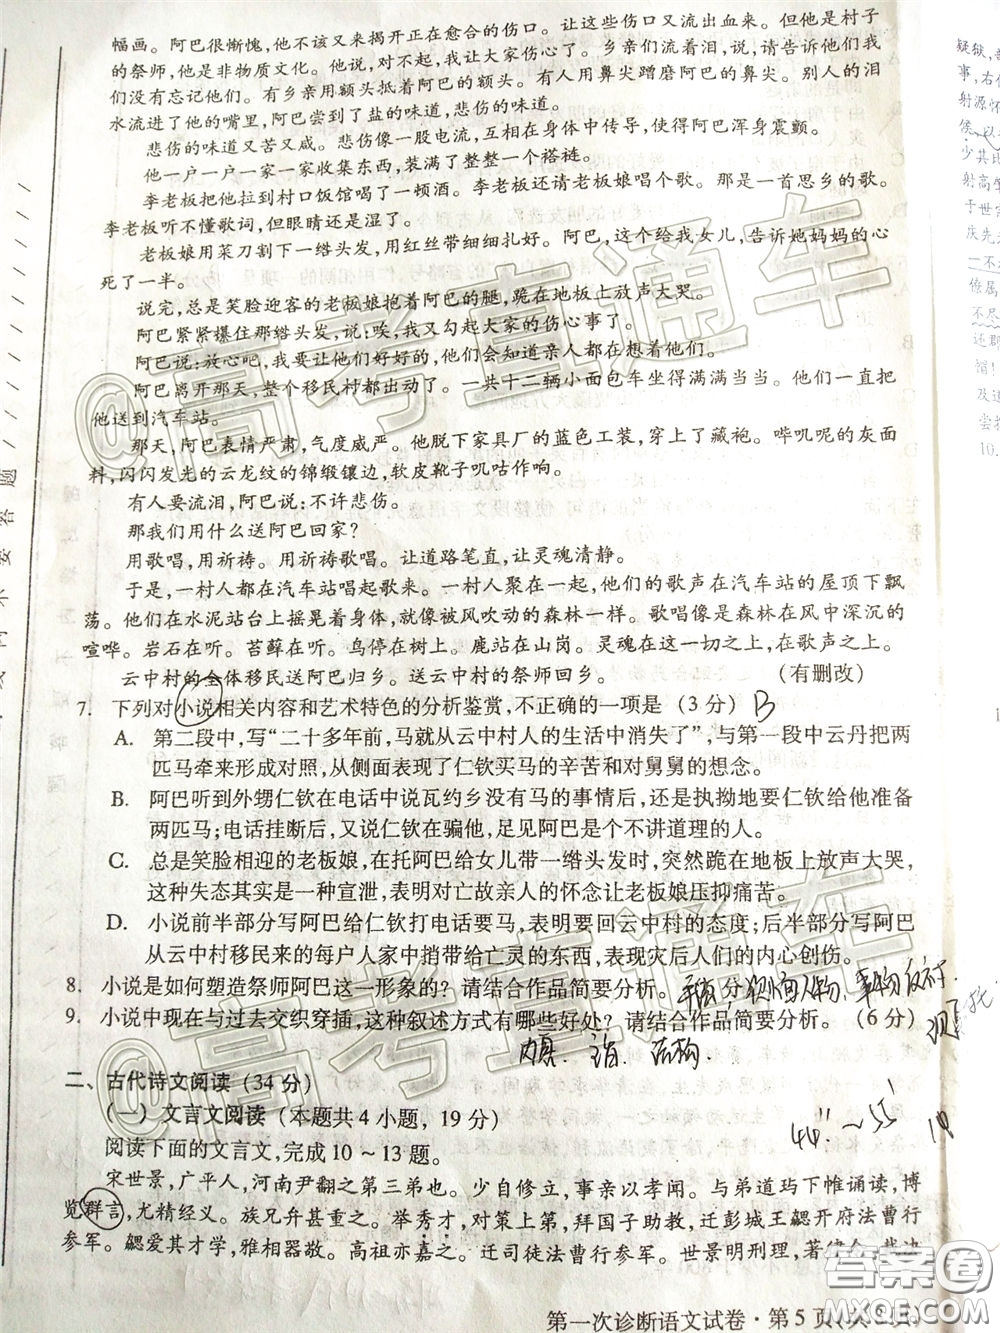 幅画。阿巴很惭愧,他不该又来揭开正在愈合的伤口。让这些伤口又流出血来。但他是村子
的祭师,他是非物质文化。他说,对不起,我让大家伤心了。乡亲们流着泪,说,请告诉他们我
们没有忘记他们。有乡亲用额头抵着阿巴的额头。有人用鼻尖蹭磨阿巴的鼻尖。别人的泪
水流进了他的嘴里,阿巴尝到了盐的味道,悲伤的味道。
悲伤的味道又苦又咸。悲伤像一股电流,互相在身体中传导,使得阿巴浑身震颤。
他一户一户一家一家收集东西,装满了整整一个褡裢。
李老板把他拉到村口饭馆喝了一顿酒。李老板还请老板娘唱个歌。那是一首思乡的歌。
李老板听不懂歌词,但眼睛还是湿了。
老板娘用菜刀割下一绺头发,用红丝带细细扎好。阿巴,这个给我女儿,告诉她妈妈的心
死了一半。
说完,总是笑脸迎客的老板娘抱着阿巴的腿,跪在地板上放声大哭。
阿巴紧紧攥住那绺头发,说:唉,我又勾起大家的伤心事了。
阿巴说:放心吧,我要让他们好好的,他们会知道亲人都在想着他们。
阿巴离开那天,整个移民村都出动了。一共十二辆小面包车坐得满满当当。他们一直把
他送到汽车站。
那天,阿巴表情严肃,气度威严。他脱下家具厂的蓝色工装,穿上了藏袍。哔叽呢的灰面
料,闪闪发光的云龙纹的锦缎镶边,软皮靴子叽咕作响。
有人要流泪,阿巴说:不许悲伤。
那我们用什么送阿巴回家?
用歌唱,用祈祷。用祈祷歌唱。让道路笔直,让灵魂清静。
于是,一村人都在汽车站唱起歌来。一村人聚在一起,他们的歌声在汽车站的屋顶下飘
荡。他们在水泥站台上摇晃着身体,就像被风吹动的森林一样。歌唱像是森林在风中深沉的
喧哗。岩石在听。苔藓在听。鸟停在树上。鹿站在山岗。灵魂在这一切之上,在歌声之上。
云中村的全体移民送阿巴归乡。送云中村的祭师回乡。 (有删改)
7. 下列对小说相关内容和艺术特色的分析鉴赏,不正确的一项是(3分) B
A. 第二段中,写“二十多年前,马就从云中村人的生活中消失了”,与第一段中云丹把两
匹马牵来形成对照,从侧面表现了仁钦买马的辛苦和对舅舅的想念。
B. 阿巴听到外甥仁钦在电话中说瓦约乡没有马的事情后,还是执拗地要仁钦给他准备
两匹马;电话挂断后,又说仁钦在骗他,足见阿巴是个不讲道理的人。
C. 总是笑脸相迎的老板娘,在托阿巴给女儿带一绺头发时,突然跪在地板上放声大哭,
这种失态其实是一种宣泄,表明对亡故亲人的怀念让老板娘压抑痛苦。
D. 小说前半部分写阿巴给仁钦打电话要马,表明要回云中村的态度;后半部分写阿巴
从云中村移民来的每户人家中捎带给亡灵的东西,表现灾后人们的内心创伤。
8. 小说是如何塑造祭师阿巴这一形象的?请结合作品简要分析。
9. 小说中现在与过去交织穿插,这种叙述方式有哪些好处?请结合作品简要分析。(6分)
结构
二、古代诗文阅读(34分)
(一)文言文阅读(本题共4小题,19分)
阅读下面的文言文,完成10~13题。
宋世景,广平人,河南尹翻之第三弟也。少自修立,事亲以孝闻。与弟道玙下帷诵读,博
览群言,尤精经义。族兄弁甚重之。举秀才,对策上第,拜国子助教,迁彭城王勰开府法曹行
参军。勰爱其才学,雅相器敬。高祖亦嘉之。迁司徒法曹行参军。世景明刑理,著律令,裁决
第一次诊断语文试卷·第5页
疑狱,
事,右
射源怀
侯,以
少共
射高
于世
庆先
一不
僚属
不尽
还郡
及道
尝
10.
@高考直通车
@高考直通车
答案圈